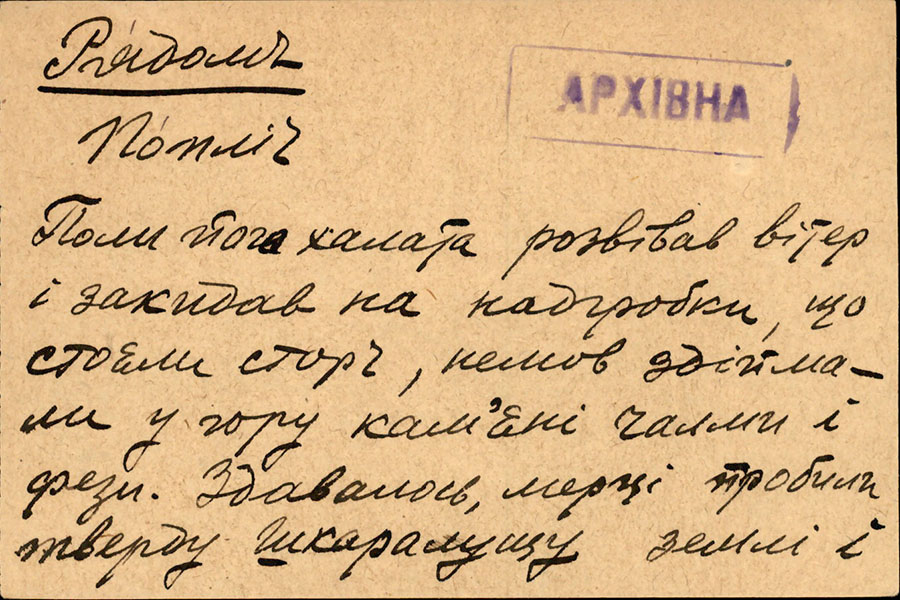 Ря́дом
АРХІВНА
По́пліч
Поли його халата розвівав вітер
і закидав на надгробки, що
стояли сторч, немов здійма-
ли у гору кам'яні чалми і
фези. Здавалось, мерці пробили
тверду шкаралущу землі і